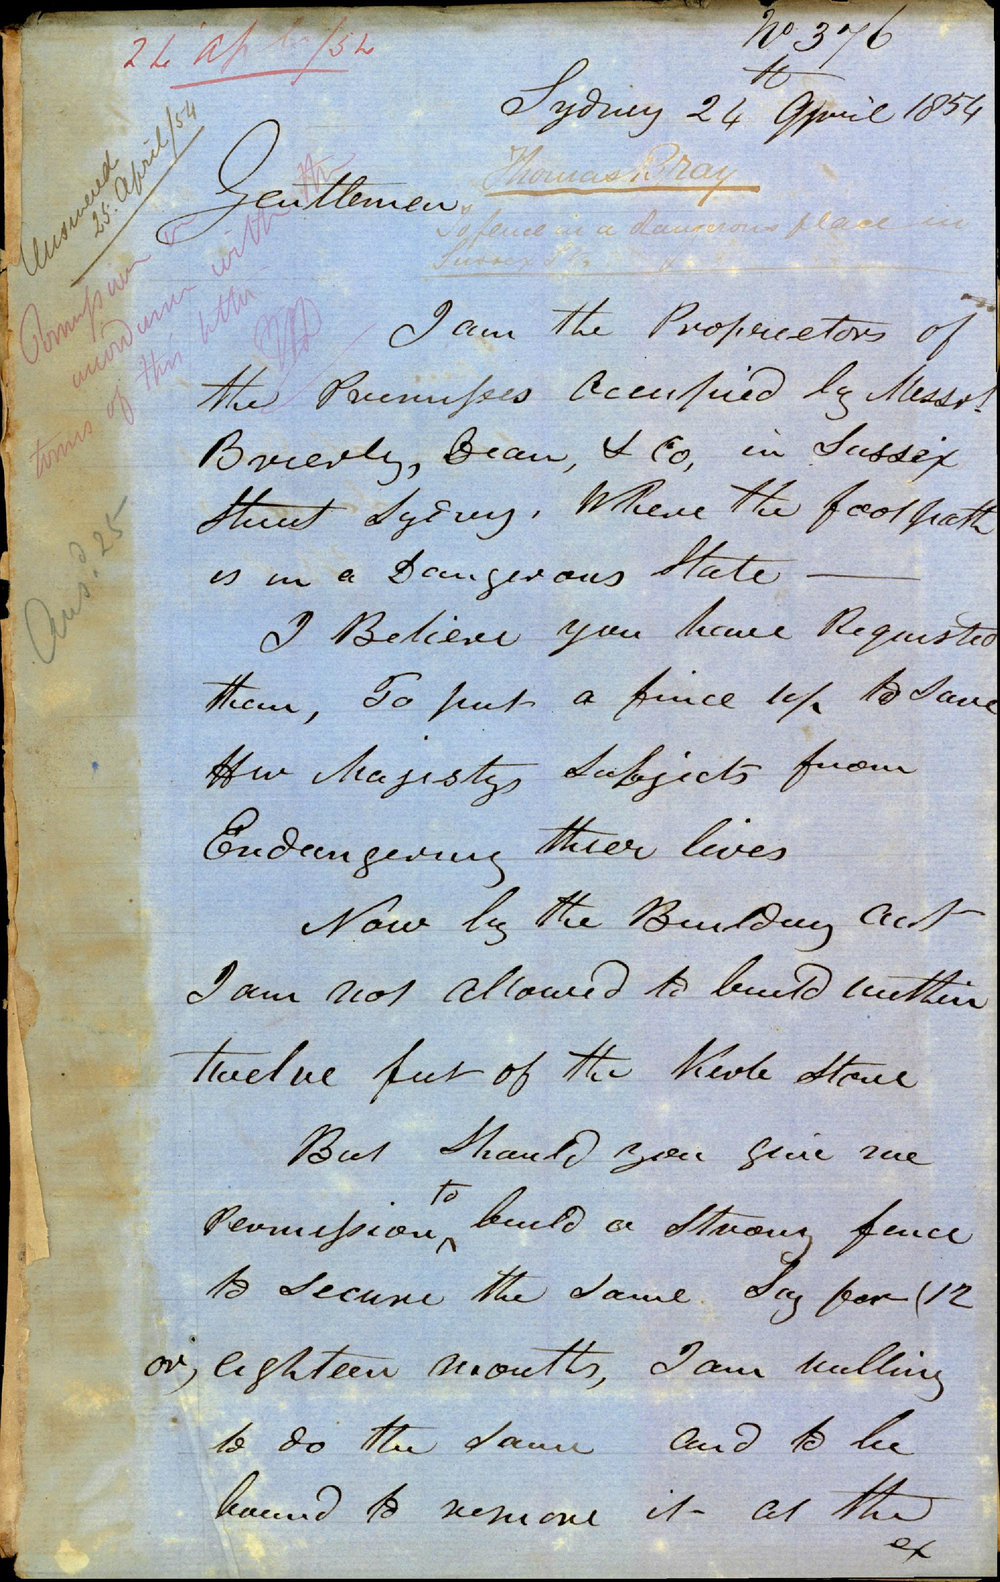 No 376
24 Apl /54
Sydney 24th April 1854
Answered
25. April/54
Thomas Bray
Gentlemen
To fence in a dangerous place in
Sussex St.
Permission in
accordance with the
terms of this letter
I am the Proprietors of
the Premises Occupied by Messrs.
Brierly, Dean, & Co, in Sussex
Street Sydney. Where the footpath
is in a Dangerous State —
Ansd. 25
I Believe you have Requested
them, To put a fince up to Save
Her Majestys Subjects from
Endangering thier lives
Now by the Building Act
I am not allowed to build within
twelve feet of the Kerb Stone
But Should you give me
Permission to build a Strong fence
to Secure the Same Say for (12
or, eighteen months, I am willing
to do the Same and to be
bound to remove it at the
ex